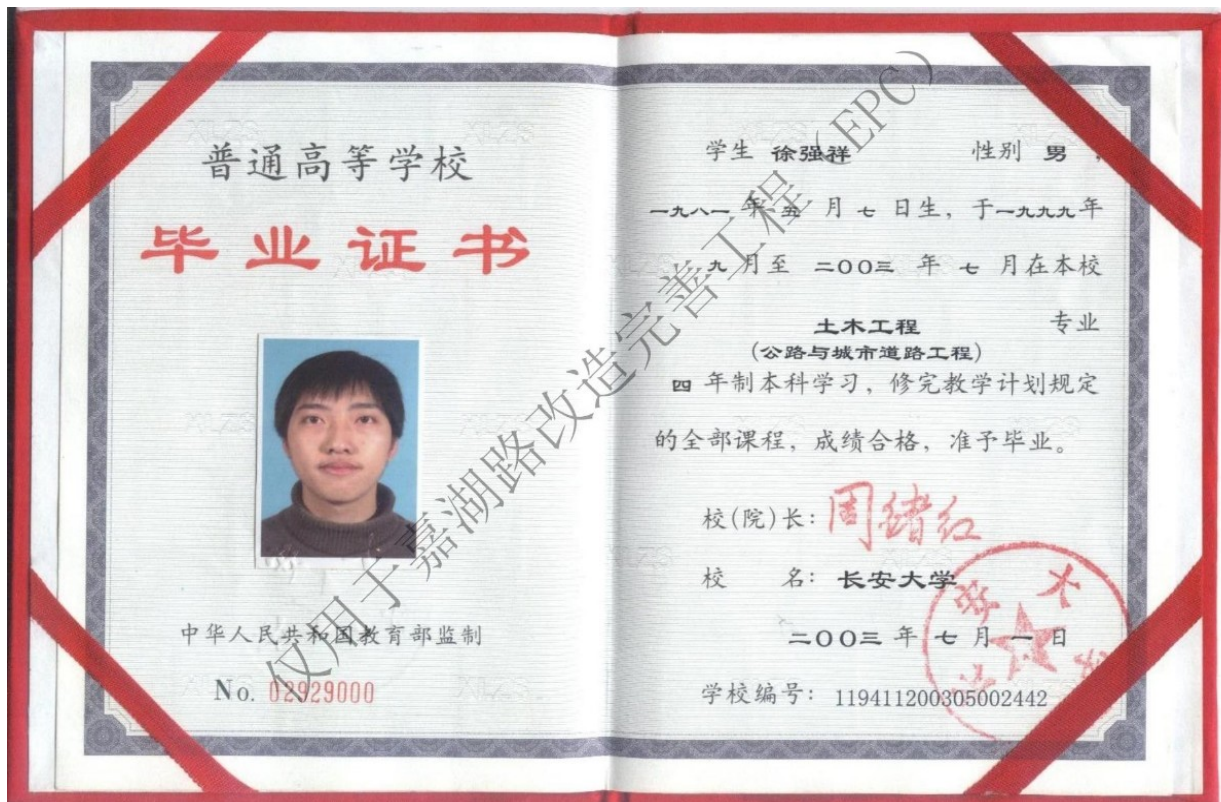 普通高等学校
毕业证书
中华人民共和国教育部监制
No. 02929000
学生 徐强祥 性别 男，
一九八一 年 五 月 七 日生，于一九九九年
九 月至 二〇〇三 年 七 月在本校
土木工程 专业
(公路与城市道路工程)
四 年制本科学习，修完教学计划规定
的全部课程，成绩合格，准予毕业。
校(院)长：周绪红
校 名：长安大学
二〇〇三 年 七 月 一 日
学校编号：119411200305002442
仅用于嘉湖路改造完善工程（EPC）